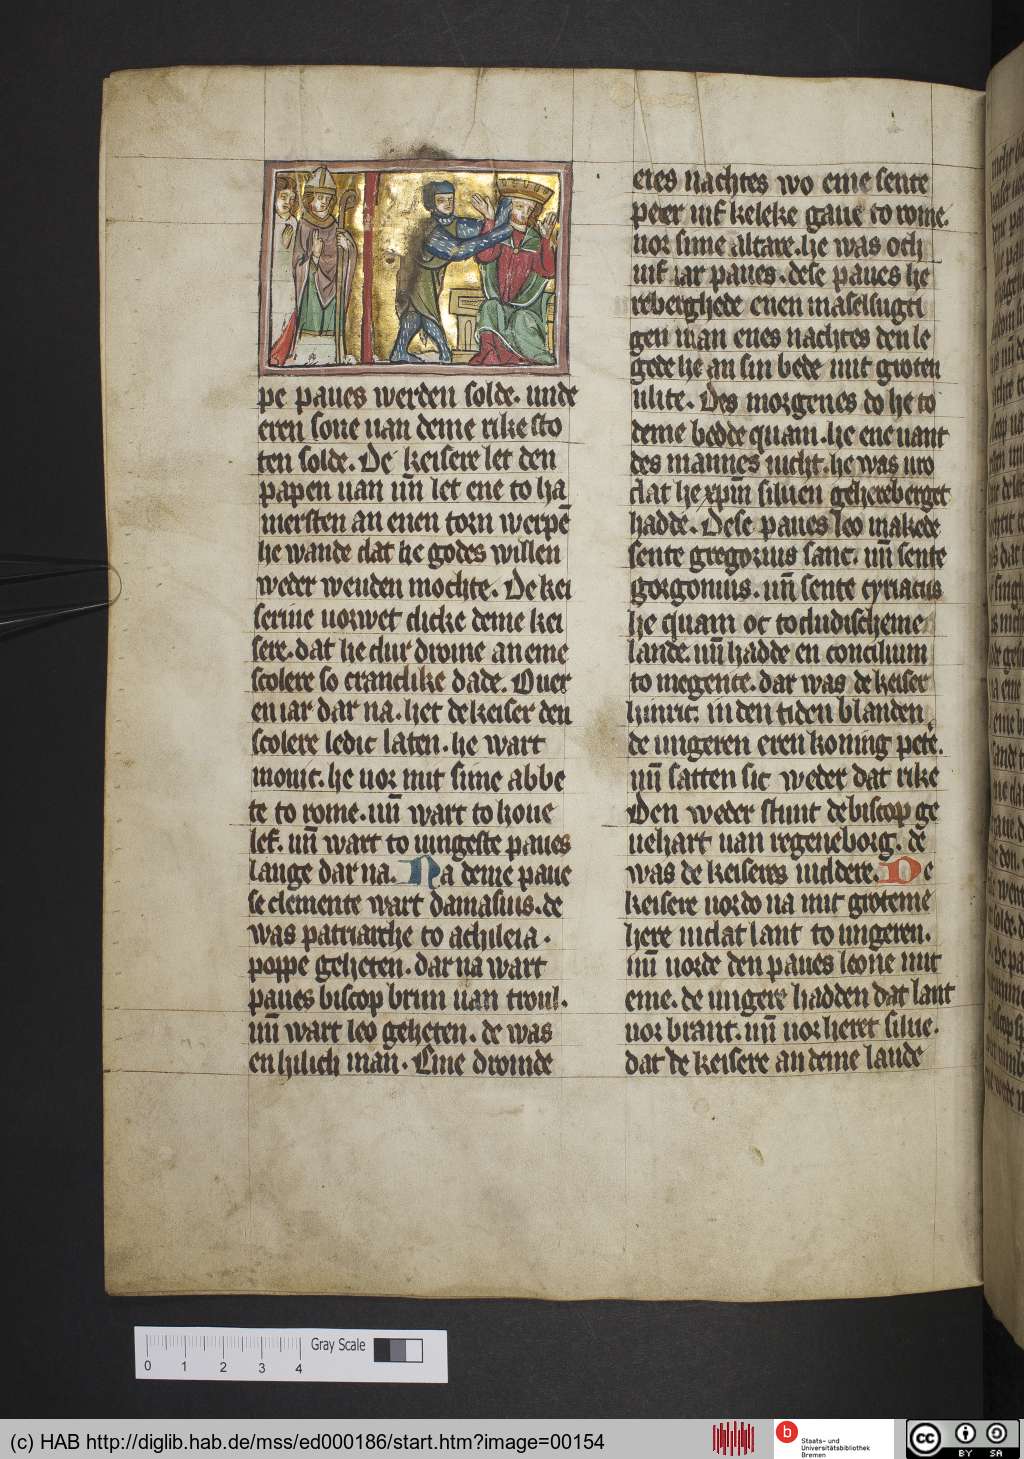 pe paues werden solde. unde
eren sone uan deme rike sto
ten solde. De keisere let den
papen uan un̄ let ene to ha
mersten an enen torn werpē
he wande dat he godes willen
weder wenden mochte. De kei
serine uorwet dicke deme kei
sere. dat he dur drome an eme
scolere so cranclike dade. Ouer
en iar dar na. het de keiser den
scolere ledic laten. he wart
monic. he uor mit sime abbe
te to rome. un̄ wart to houe
lef. un̄ wart to iungeste paues
lange dar na. Na deme paue
se clemente wart damasius. de
was patriarche to achileia.
poppe geheten. dar na wart
paues biscop brun uan troul.
un̄ wart leo geheten. de was
en hilich man. Eme dromde
enes nachtes wo eme sente
peter uif keleke gaue to rome.
uor sime altare. he was och
uif iar paues. dese paues he
reberghede enen maselsugti
gen man enes nachtes den le
gede he an sin bede mit groten
ulite. Des morgenes do he to
deme bedde quam. he ene uant
des mannes nicht. he was uro
dat he xp̄m siluen gehereberget
hadde. Dese paues leo makede
sente gregorius sanc. un̄ sente
gorgonius. un̄ sente cyriacus
he quam oc to dudischeme
lande. un̄ hadde en concilium
to megence. dar was de keiser
hinric. in den tiden blanden
de ungeren eren koning petē.
un̄ satten sic weder dat rike
Den weder stunt de biscop ge
uehart uan regeneborg. de
was de keiseres uiddere. De
keisere uor do na mit groteme
here in dat lant to ungeren.
un̄ uorde den paues leone mit
eme. de ungere hadden dat lant
uor brant. un̄ uor heret silue.
dat de keisere an deme lande
0 1 2 3 4
Gray Scale
(c) HAB http://diglib.hab.de/mss/ed000186/start.htm?image=00154
b
Staats- und
Universitätsbibliothek
Bremen
cc
BY SA